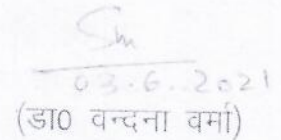 03.6.2021
(डा0 वन्दना वर्मा)